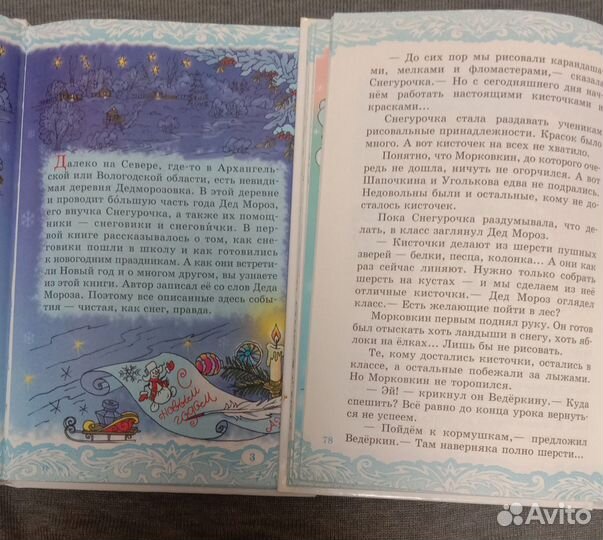 Далеко на Севере, где-то в Архангель-
ской или Вологодской области, есть невиди-
мая деревня Дедморозовка. В этой деревне
и проводит бо́льшую часть года Дед Мороз,
его внучка Снегурочка, а также их помощ-
ники — снеговики и снегови́чки. В пер-
вой книге рассказывалось о том, как сне-
говики пошли в школу и как готовились
к новогодним праздникам. А как они встрети-
ли Новый год и о многом другом, вы узнаете
из этой книги. Автор записал её со слов Деда
Мороза. Поэтому все описанные здесь собы-
тия — чистая, как снег, правда.
С
новым
годом
3
— До сих пор мы рисовали карандаша-
ми, мелками и фломастерами,— сказала
Снегурочка.— Но с сегодняшнего дня нач-
нём работать настоящими кисточками и
красками...
Снегурочка стала раздавать ученикам
рисовальные принадлежности. Красок было
много. А вот кисточек на всех не хватило.
Понятно, что Морковкин, до которого оче-
редь не дошла, ничуть не огорчился. А вот
Шапочкина и Уголькова едва не подрались.
Недовольны были и остальные, кому не до-
сталось кисточек.
Пока Снегурочка раздумывала, что де-
лать, в класс заглянул Дед Мороз.
— Кисточки делают из шерсти пушных
зверей — белки, песца, колонка... А они как
раз сейчас линяют. Нужно только собрать
шерсть на кустах — и мы сделаем из неё
отличные кисточки.— Дед Мороз оглядел
класс.— Есть желающие пойти в лес?
Морковкин первым поднял руку. Он готов
был отыскать хоть ландыши в снегу, хоть яб-
локи на ёлках... Лишь бы не рисовать.
Те, кому достались кисточки, остались в
классе, а остальные побежали за лыжами.
Но Морковкин не торопился.
— Эй! — крикнул он Ведёркину.— Куда
спешить? Всё равно до конца урока вернуть-
ся не успеем.
— Пойдём к кормушкам,— предложил
Ведёркин.— Там наверняка полно шерсти...
78
Avito